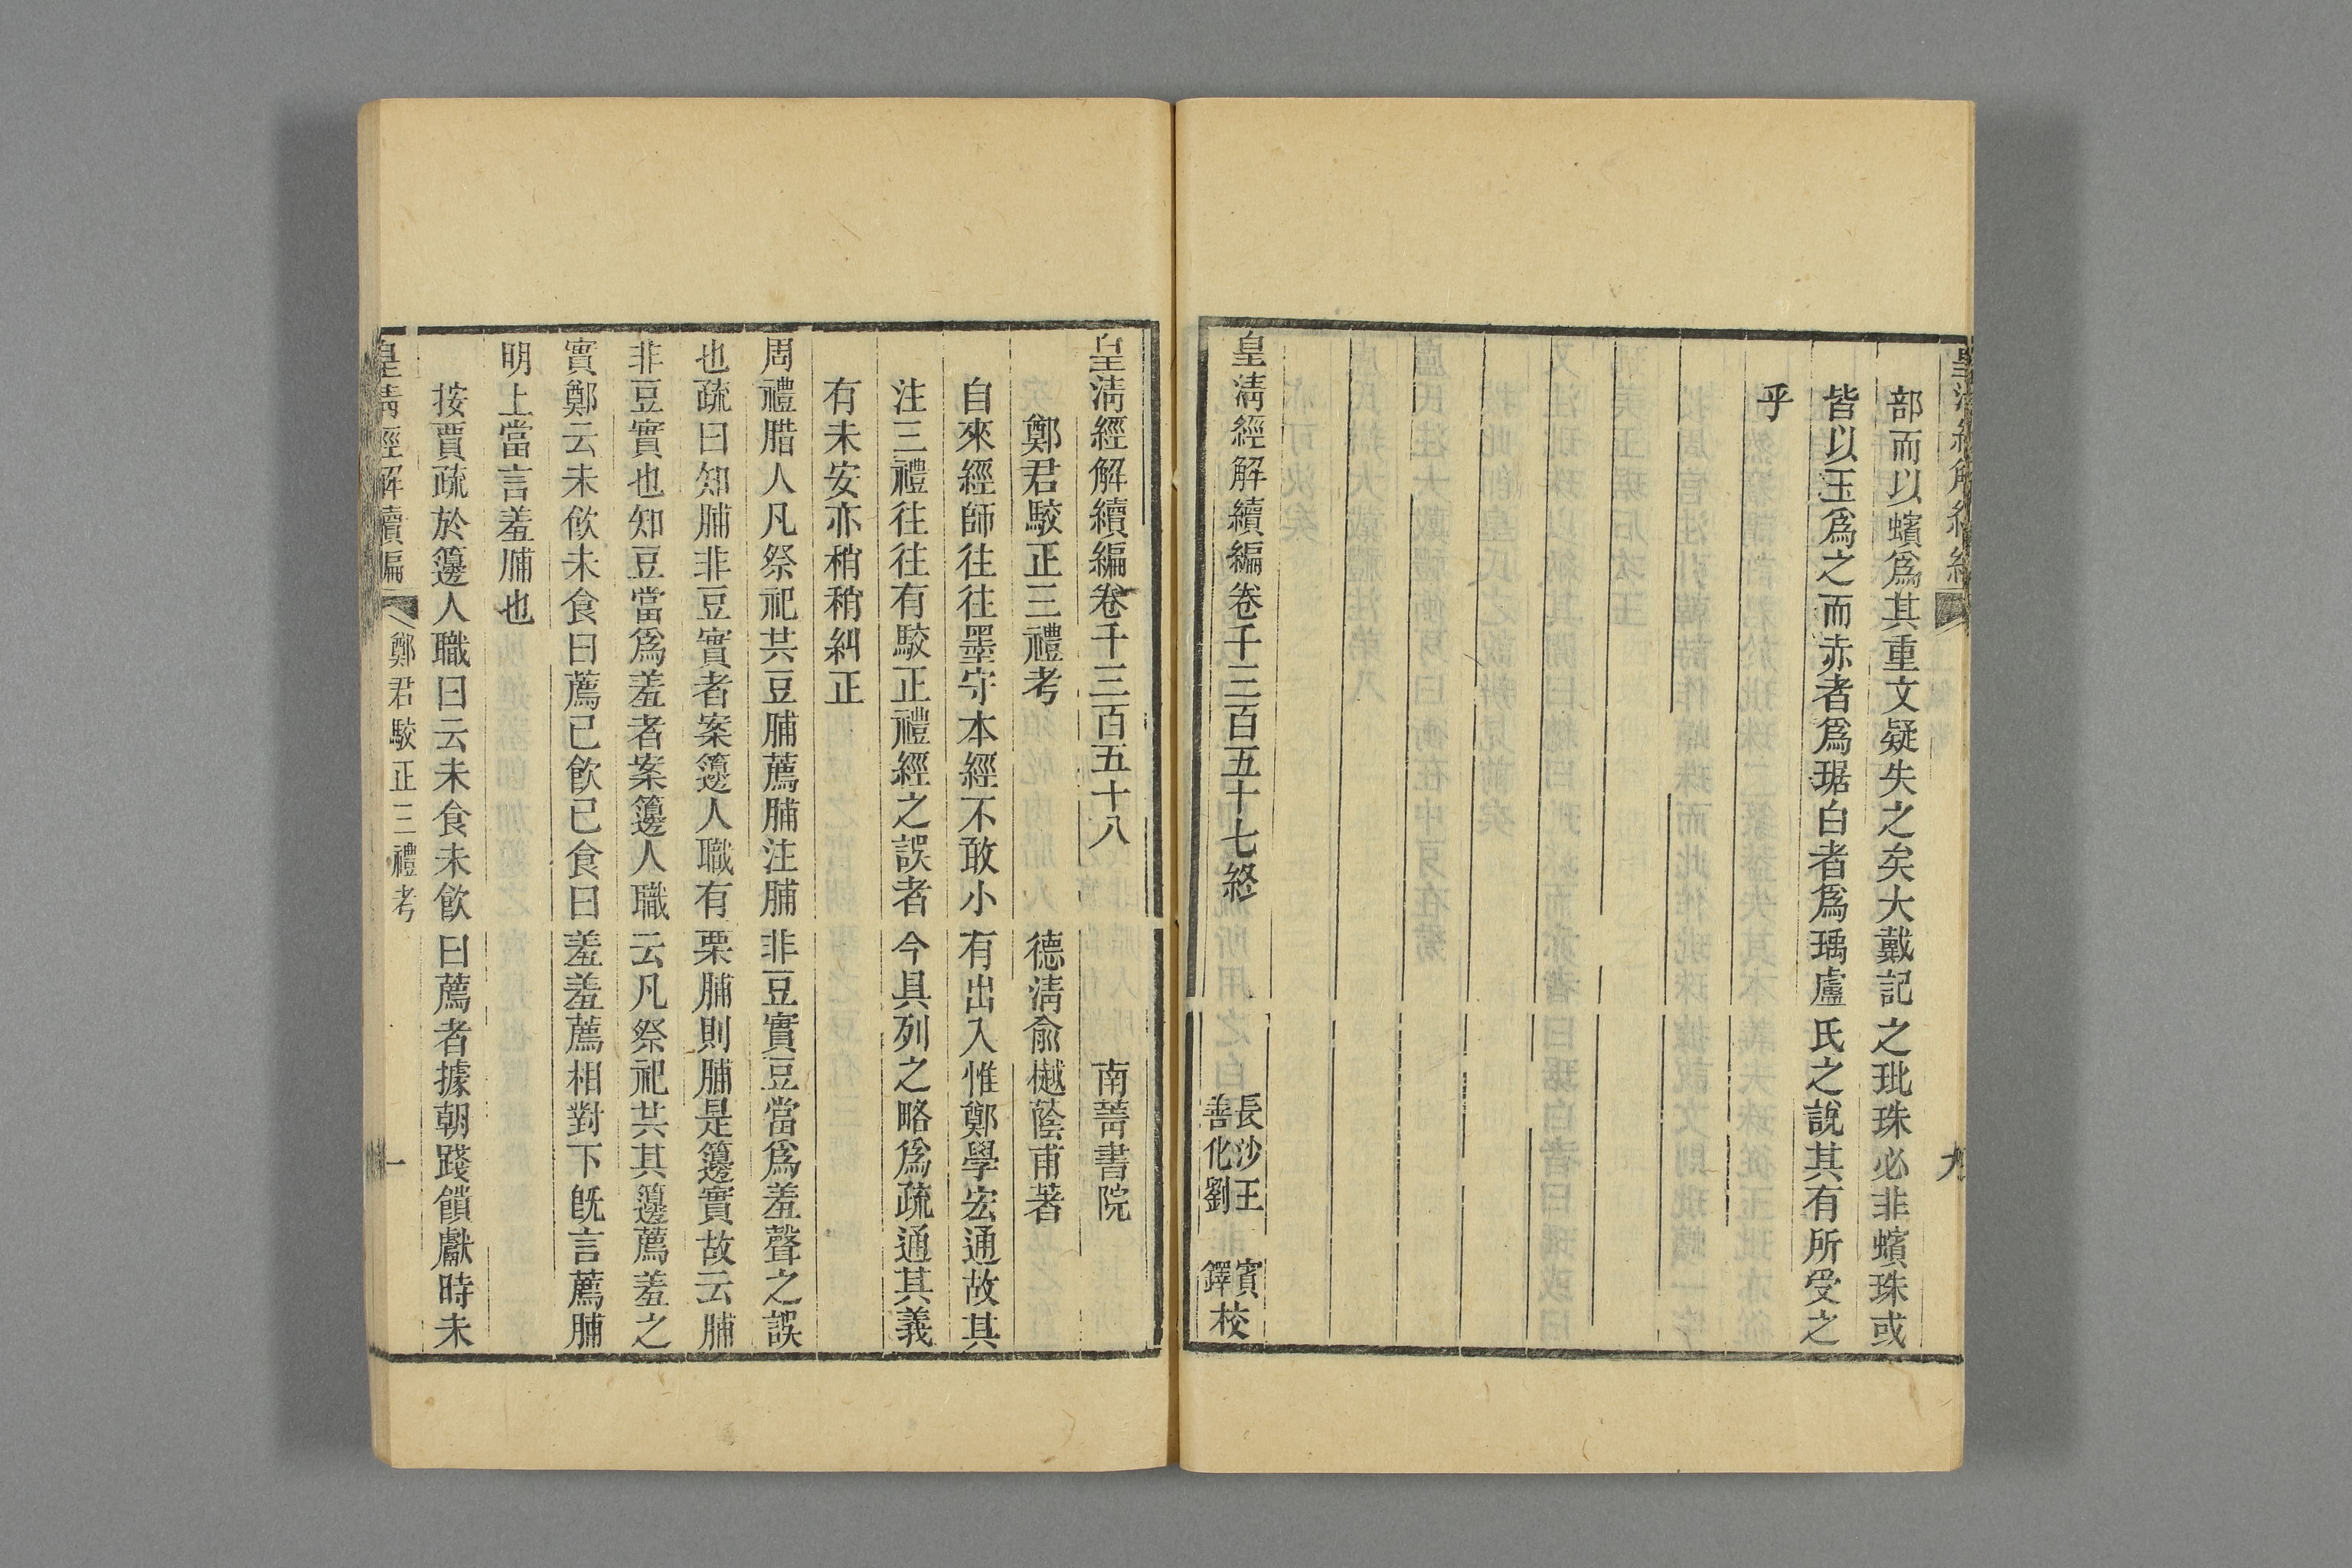 部而以蠙爲其重文疑失之矣大戴記之玭珠必非蠙珠或
皆以玉爲之而赤者爲琚白者爲瑀盧氏之說其有所受之
乎
皇清經解續編卷千三百五十七終
長沙王
善化劉
賓
鐸
校
皇清經解續編卷千三百五十八
南菁書院
鄭君駮正三禮考
德清俞樾蔭甫著
自來經師往往墨守本經不敢小有出入惟鄭學宏通故其
注三禮往往有駮正禮經之誤者今具列之略爲疏通其義
有未安亦稍稍糾正
周禮腊人凡祭祀共豆脯薦脯注脯非豆實豆當爲羞聲之誤
也疏曰知脯非豆實者案籩人職有栗脯則脯是籩實故云脯
非豆實也知豆當爲羞者案籩人職云凡祭祀共其籩薦羞之
實鄭云未飮未食曰薦已飮已食曰羞羞薦相對下旣言薦脯
明上當言羞脯也
按賈疏於籩人職曰云未食未飮曰薦者據朝踐饋獻時未
皇清經解續編
鄭君駮正三禮考
一